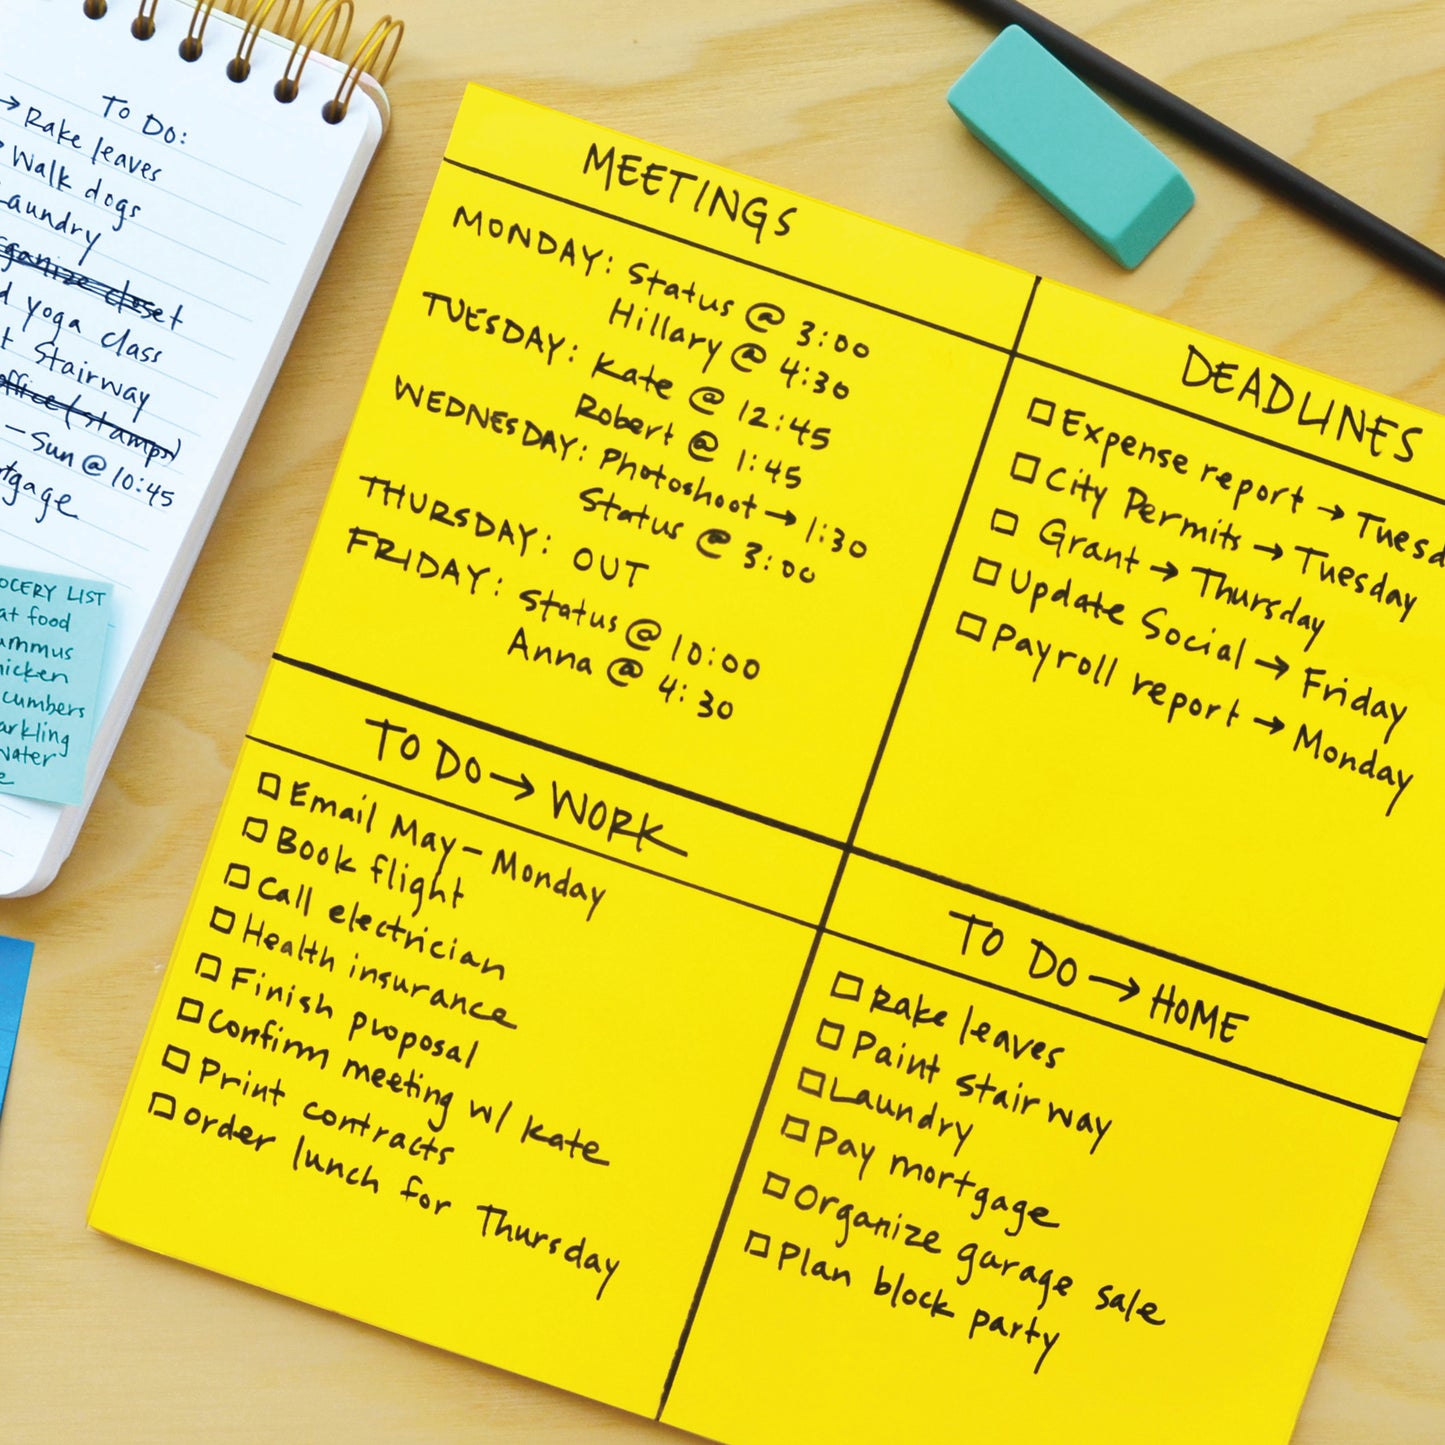 To Do:
→ Rake leaves
Walk dogs
Laundry
yoga class
Stairway
office (stamps)
- Sun @ 10:45
GROCERY LIST
food
water
MEETINGS
MONDAY: Status @ 3:00
Hillary @ 4:30
TUESDAY: Kate @ 12:45
Robert @ 1:45
WEDNESDAY: Photoshoot → 1:30
Status @ 3:00
THURSDAY: OUT
FRIDAY: Status @ 10:00
Anna @ 4:30
DEADLINES
Expense report → Tuesd
City Permits → Tuesday
Grant → Thursday
Update Social → Friday
Payroll report → Monday
TO DO → WORK
Email May - Monday
Book flight
Call electrician
Health insurance
Finish proposal
Confirm meeting w/ Kate
Print contracts
Order lunch for Thursday
TO DO → HOME
Rake leaves
Paint stairway
Laundry
Pay mortgage
Organize garage sale
Plan block party